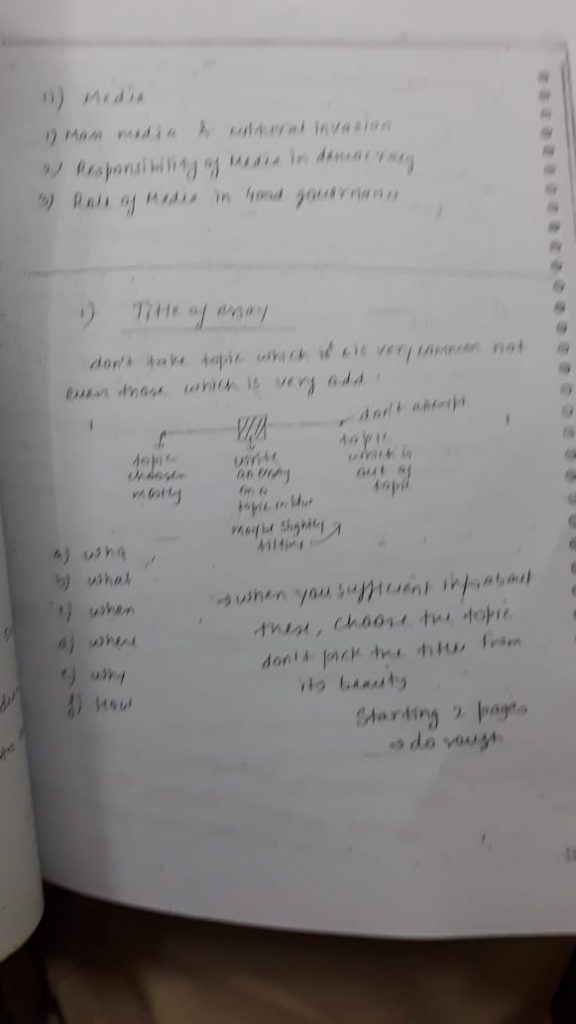 11) Media
1) Mass media & cultural invasion
2) Responsibility of Media in democracy
3) Role of Media in Good governance
1) Title of essay
don't take topic which is very common not
even those which is very odd.
don't attempt
topic
mostly
write
an essay
on a
topic in b/w
maybe slightly
tilting
topic
which is
out of
topic
a) who
b) what
c) when
d) where
e) why
f) How
→ when you sufficient info about
these, choose the topic
don't pick the title from
its beauty
Starting 2 pages
→ do rough